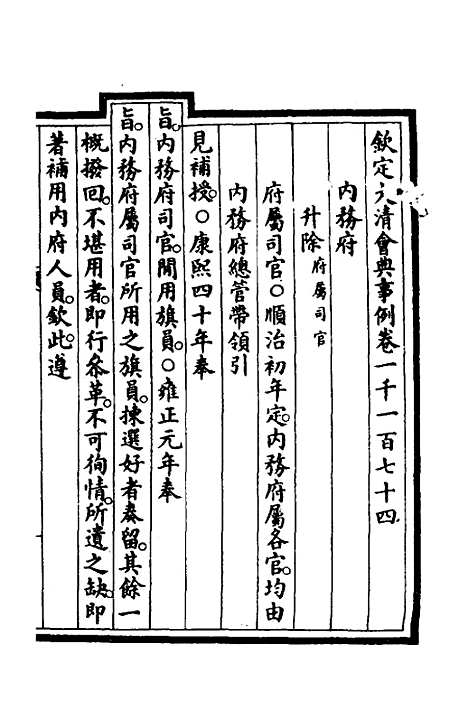 欽定大清會典事例卷一千一百七十四
內務府
升除府屬司官
府屬司官○順治初年定。內務府屬各官。均由
內務府總管帶領引
見補授。○康熙四十年奉
旨。內務府司官。閒用旗員。○雍正元年奉
旨。內務府屬司官所用之旗員。揀選好者奏留。其餘一
槪撥回。不堪用者。卽行叅革。不可徇情。所遺之缺。卽
著補用內府人員。欽此。遵